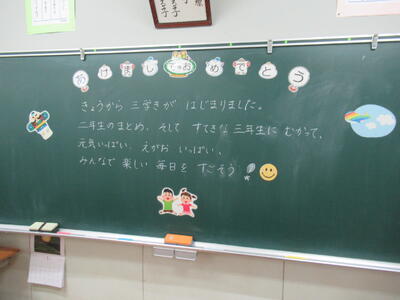 あけましておめでとう
きょうから 三学きが はじまりました。
二年生のまとめ、そして すてきな三年生に むかって、
元気いっぱい、えがお いっぱい、
みんなで 楽しい 毎日を すごそう